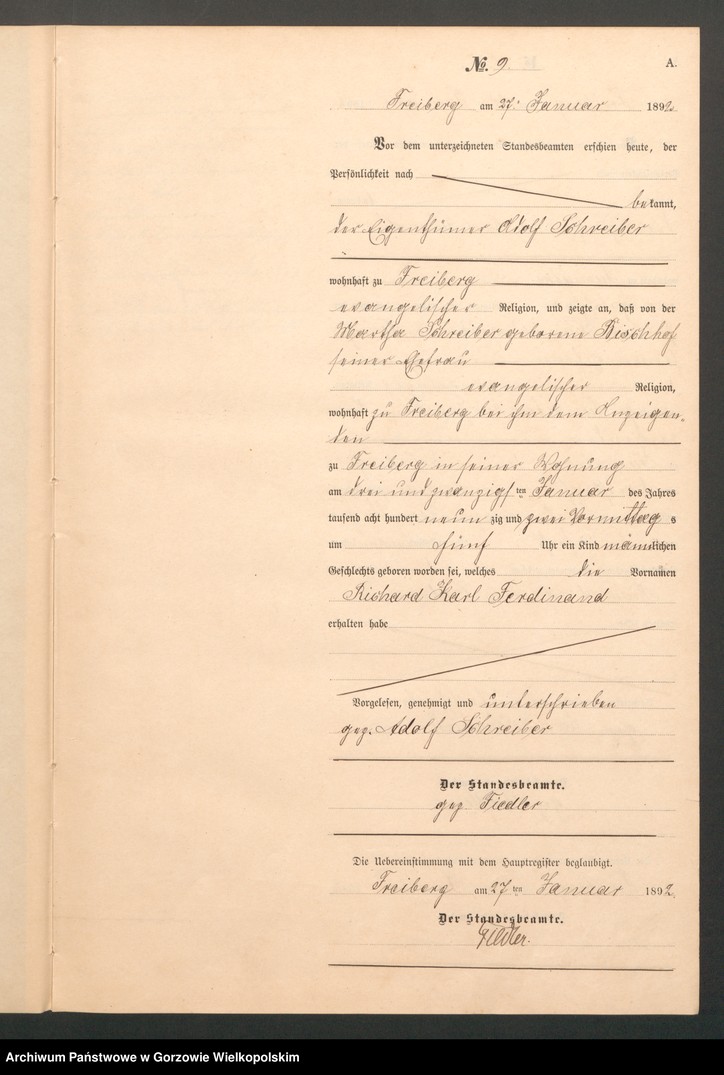 No. 9
A.
Freiberg am 27. Januar 1892
Vor dem unterzeichneten Standesbeamten erschien heute, der
Persönlichkeit nach
bekannt,
der Eigenthümer Adolf Schreiber
wohnhaft zu Freiberg
evangelischer Religion, und zeigte an, daß von der
Martha Schreiber geborene Bischhof
seiner Ehefrau
evangelischer Religion,
wohnhaft zu Freiberg bei ihm dem Anzeigen-
den
zu Freiberg in seiner Wohnung
am drei und zwanzigsten Januar des Jahres
tausend acht hundert neunzig und zwei Vormittags
um fünf Uhr ein Kind männlichen
Geschlechts geboren worden sei, welches die Vornamen
Richard Karl Ferdinand
erhalten habe
Vorgelesen, genehmigt und unterschrieben
gez. Adolf Schreiber
Der Standesbeamte.
gez. Fiedler
Die Uebereinstimmung mit dem Hauptregister beglaubigt.
Freiberg am 27ten Januar 1892.
Der Standesbeamte.
Fiedler.
Archiwum Państwowe w Gorzowie Wielkopolskim